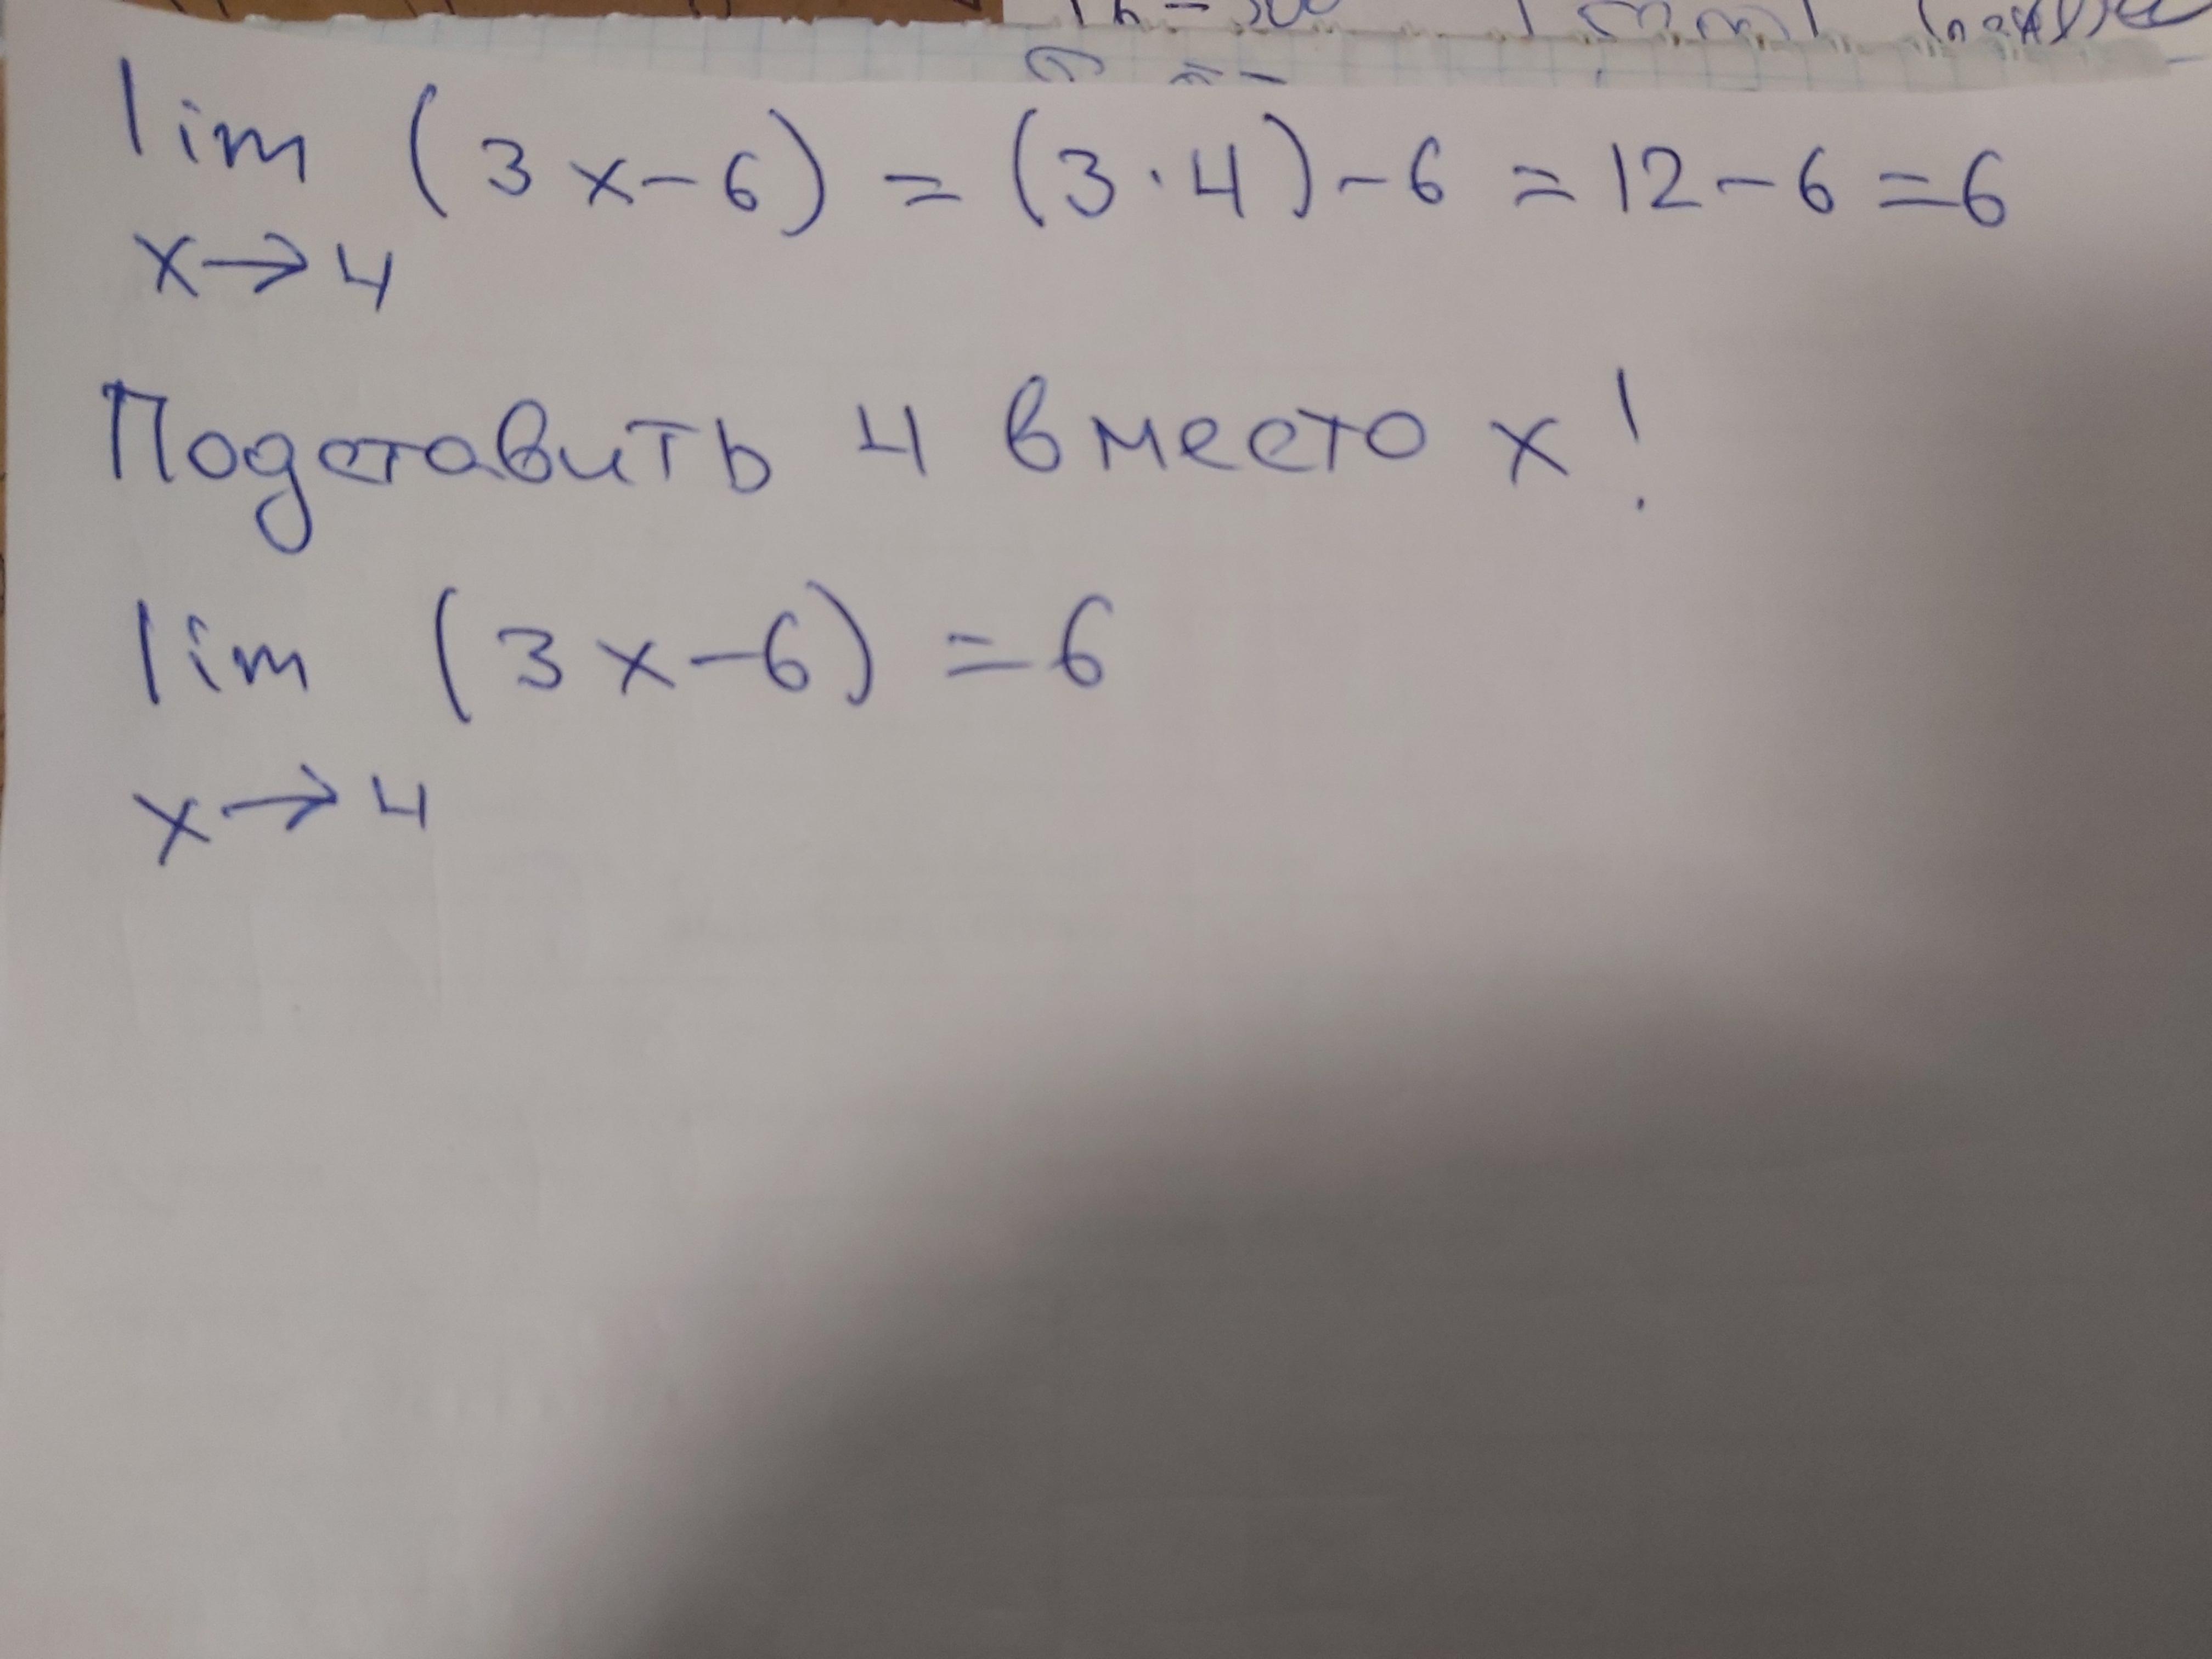 lim (3x-6) = (3·4)-6 = 12-6=6
x→4
Подставить 4 вместо x!
lim (3x-6) =6
x→4